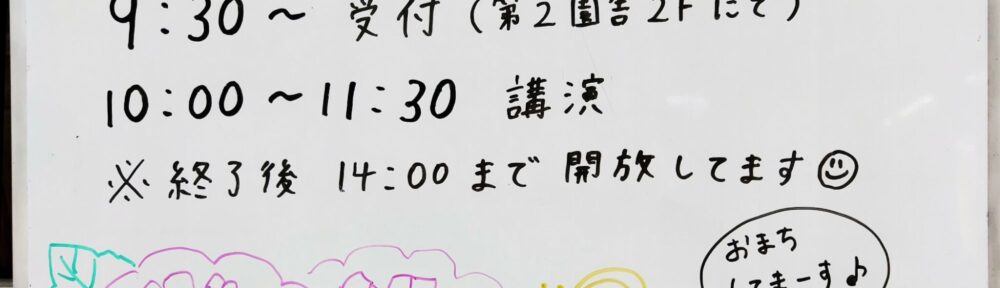 9:30〜 受付 (第2園舎2Fにて)
10:00〜11:30 講演
※終了後 14:00まで開放してます
おまち
してまーす♪